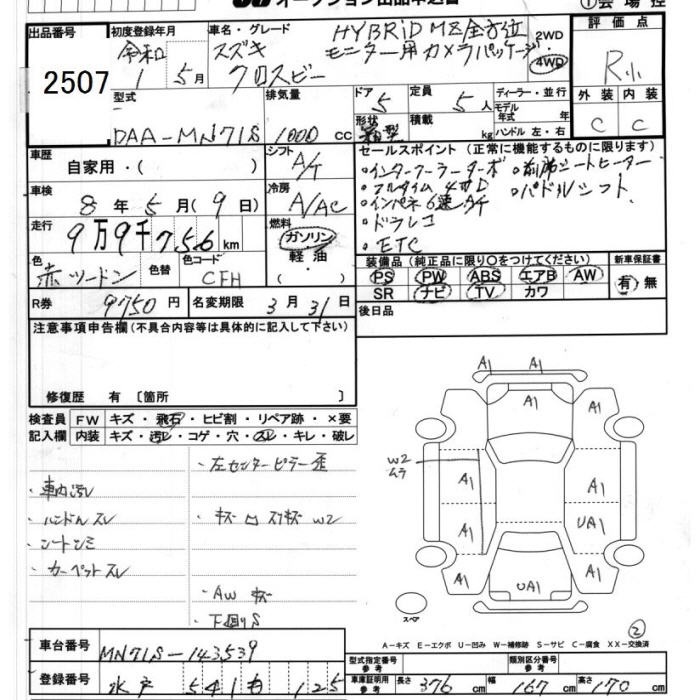 オークション出品申込書
出品番号
2507
初度登録年月
令和
1 5月
車名・グレード
スズキ
クロスビー
HYBRID MZ全方位
モニター用カメラパッケージ
2WD
4WD
評価点
R小
外装 内装
C C
型式
DAA-MN71S
排気量
1000 cc
ドア
5
形状
定員
5人
積載
kg
ディーラー・並行
モデル
年式 年
ハンドル 左・右
車歴
自家用・( )
シフト
A/T
車検
8年5月(9日)
冷房
A/AC
走行
9万9千756km
燃料
ガソリン
軽油
・( )
色
赤ツートン
色替
色コード
CFH
R券
9750円
名変期限
3月31日
セールスポイント (正常に機能するものに限ります)
・インタークーラーターボ ・前席シートヒーター
・フルタイム4WD ・パドルシフト
・インパネ6速A/T
・ドラレコ
・ETC
装備品 (純正品に限り○をつけてください) 新車保証書
PS PW ABS エアB AW
SR ナビ TV カワ
有 無
後日品
注意事項申告欄 (不具合内容等は具体的に記入して下さい)
修復歴 有 〔箇所 〕
検査員 FW キズ・飛石・ヒビ割・リペア跡・×要
記入欄 内装 キズ・汚レ・コゲ・穴・スレ・キレ・破レ
・車内汚レ
・ハンドルスレ
・シートシミ
・カーペットスレ
・左センターピラー歪
・AWキズ
・下廻りS
A1 A1
A1 A1
W2
ムラ
A1 A1
A1 UA1
A1 UA1 A1
スペア
②
A-キズ E-エクボ U-凹み W-補修跡 S-サビ C-腐食 XX-交換済
車台番号
MN71S-143539
登録番号
水戸 541 も 125
型式指定番号
参考
類別区分番号
参考
車庫証明用
参考
長さ 376cm 幅 167cm 高さ 170cm